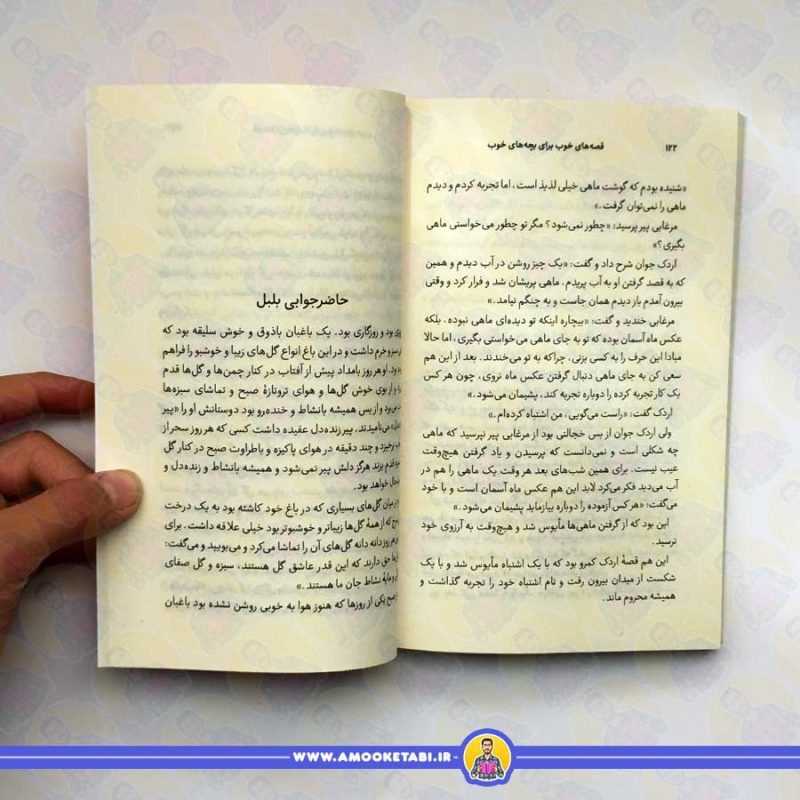 ۱۲۲
قصه‌های خوب برای بچه‌های خوب
«شنیده بودم که گوشت ماهی خیلی لذیذ است، اما تجربه کردم و دیدم
ماهی را نمی‌توان گرفت.»
مرغابی پیر پرسید: «چطور نمی‌شود؟ مگر تو چطور می‌خواستی ماهی
بگیری؟»
اردک جوان شرح داد و گفت: «یک چیز روشن در آب دیدم و همین
که به قصد گرفتن او به آب پریدم، ماهی پریشان شد و فرار کرد و وقتی
بیرون آمدم باز دیدم همان جاست و به چنگم نیامد.»
مرغابی خندید و گفت: «بیچاره اینکه تو دیده‌ای ماهی نبوده، بلکه
عکس ماه آسمان بوده که تو به جای ماهی می‌خواستی بگیری، اما حالا
مبادا این حرف را به کسی بزنی، چراکه به تو می‌خندند. بعد از این هم
سعی کن به جای ماهی دنبال گرفتن عکس ماه نروی، چون هر کس
یک کار تجربه کرده را دوباره تجربه کند، پشیمان می‌شود.»
اردک گفت: «راست می‌گویی، من اشتباه کرده‌ام.»
ولی اردک جوان از بس خجالتی بود از مرغابی پیر نپرسید که ماهی
چه شکلی است و نمی‌دانست که پرسیدن و یاد گرفتن هیچ‌وقت
عیب نیست. برای همین شب‌های بعد هر وقت یک ماهی را هم در
آب می‌دید فکر می‌کرد لابد این هم عکس ماه آسمان است و با خود
می‌گفت: «هر کس آزموده را دوباره بیازماید پشیمان می‌شود.»
این بود که از گرفتن ماهی‌ها مأیوس شد و هیچ‌وقت به آرزوی خود
نرسید.
این هم قصهٔ اردک کمرو بود که با یک اشتباه مأیوس شد و با یک
شکست از میدان بیرون رفت و نام اشتباه خود را تجربه گذاشت و
همیشه محروم ماند.
حاضرجوابی بلبل
بود و روزگاری بود. یک باغبان باذوق و خوش سلیقه بود که
و خرم داشت و در این باغ انواع گل‌های زیبا و خوشبو را فراهم
بود. او هر روز بامداد پیش از آفتاب در کنار چمن‌ها و گل‌ها قدم
و از بوی خوش گل‌ها و هوای تروتازهٔ صبح و تماشای سبزه‌ها
و از بس همیشه بانشاط و خنده‌رو بود دوستانش او را «پیر
می‌نامیدند. پیر زنده‌دل عقیده داشت کسی که هر روز سحر از
برخیزد و چند دقیقه در هوای پاکیزه و باطراوت صبح در کنار گل
قدم بزند هرگز دلش پیر نمی‌شود و همیشه بانشاط و زنده‌دل و
خواهد بود.
میان گل‌های بسیاری که در باغ خود کاشته بود به یک درخت
که از همهٔ گل‌ها زیباتر و خوشبوتر بود خیلی علاقه داشت. برای
روز دانه دانه گل‌های آن را تماشا می‌کرد و می‌بویید و می‌گفت:
حق دارند که این قدر عاشق گل هستند، سبزه و گل صفای
و مایهٔ نشاط جان ما هستند.»
صبح یکی از روزها که هنوز هوا به خوبی روشن نشده بود باغبان
WWW.AMOOKETABI.IR